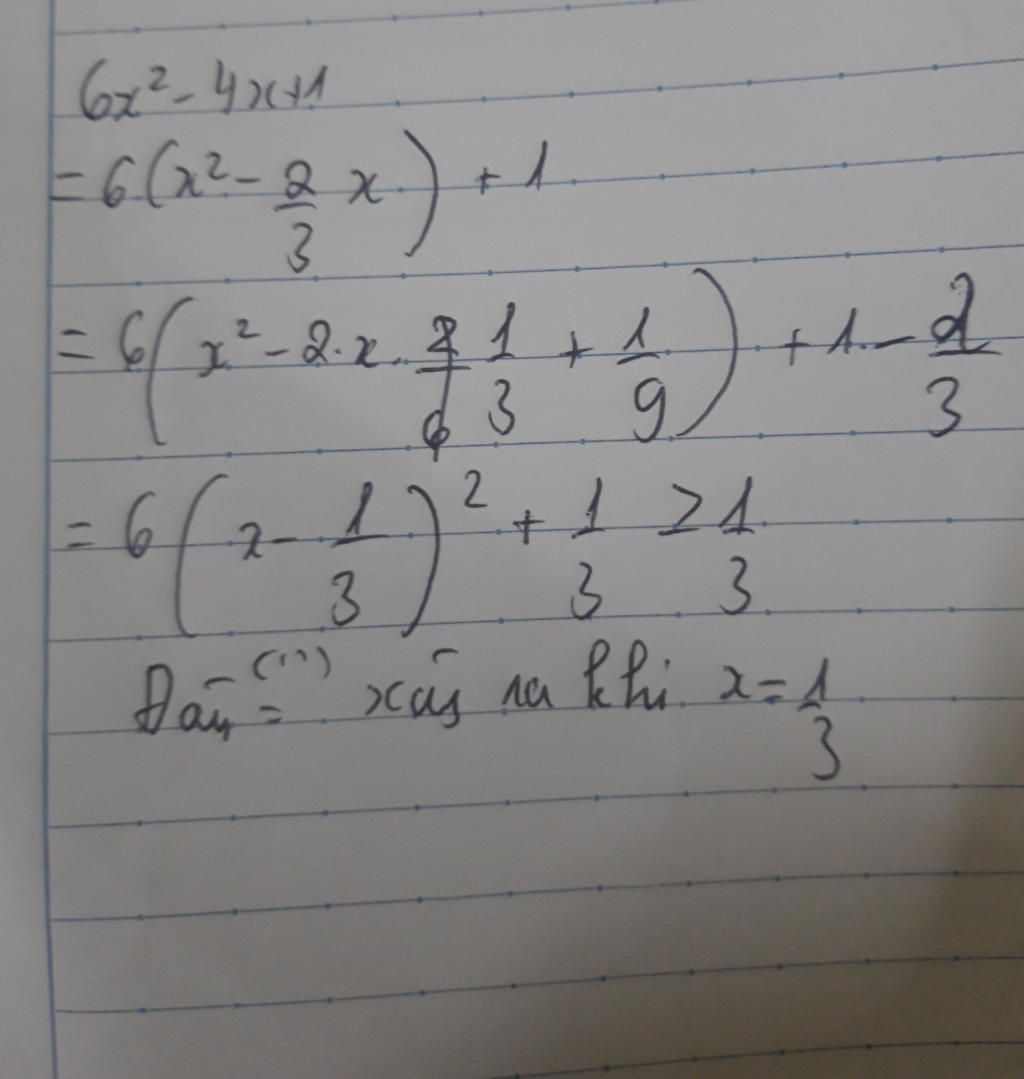 6x² - 4x + 1
= 6(x² - 2/3 x) + 1
= 6(x² - 2·x· 1/3 + 1/9) + 1 - 2/3
= 6(x - 1/3)² + 1/3 ≥ 1/3
Dấu "=" xảy ra khi x = 1/3